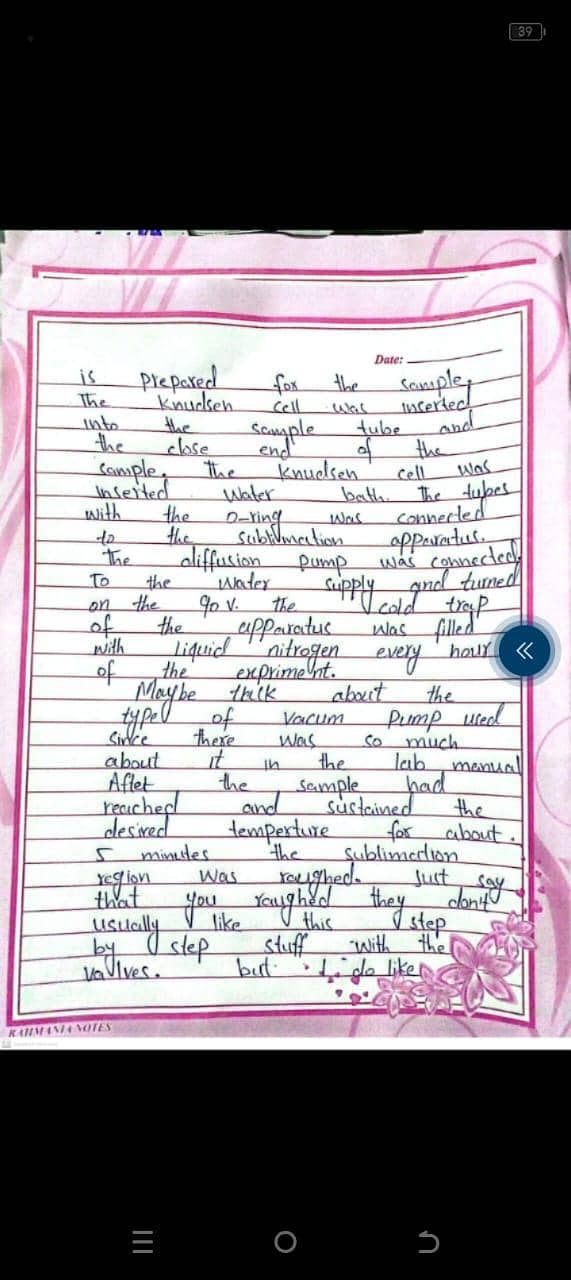 39
Date:
is prepared for the sample,
The Knudsen cell was inserted
into the sample tube and
the close end of the
sample. The Knudsen cell was
inserted Water bath. The tubes
with the O-ring was connected
to the sublimation apparatus.
The diffusion pump was connected
To the water supply and turned
on the 90 V. the cold trap
of the apparatus was filled
with liquid nitrogen every hour
of the exprimeint.
Maybe talk about the
type of Vacum Pump used
Since there was so much
about it in the lab manual
After the sample had
reached and sustained the
desired temperture for about.
5 minutes the sublimation
region was roughed. Just say
that you roughed they don't
usually like this step
by step stuff with the
valves. but I do like
RAHMANIA NOTES